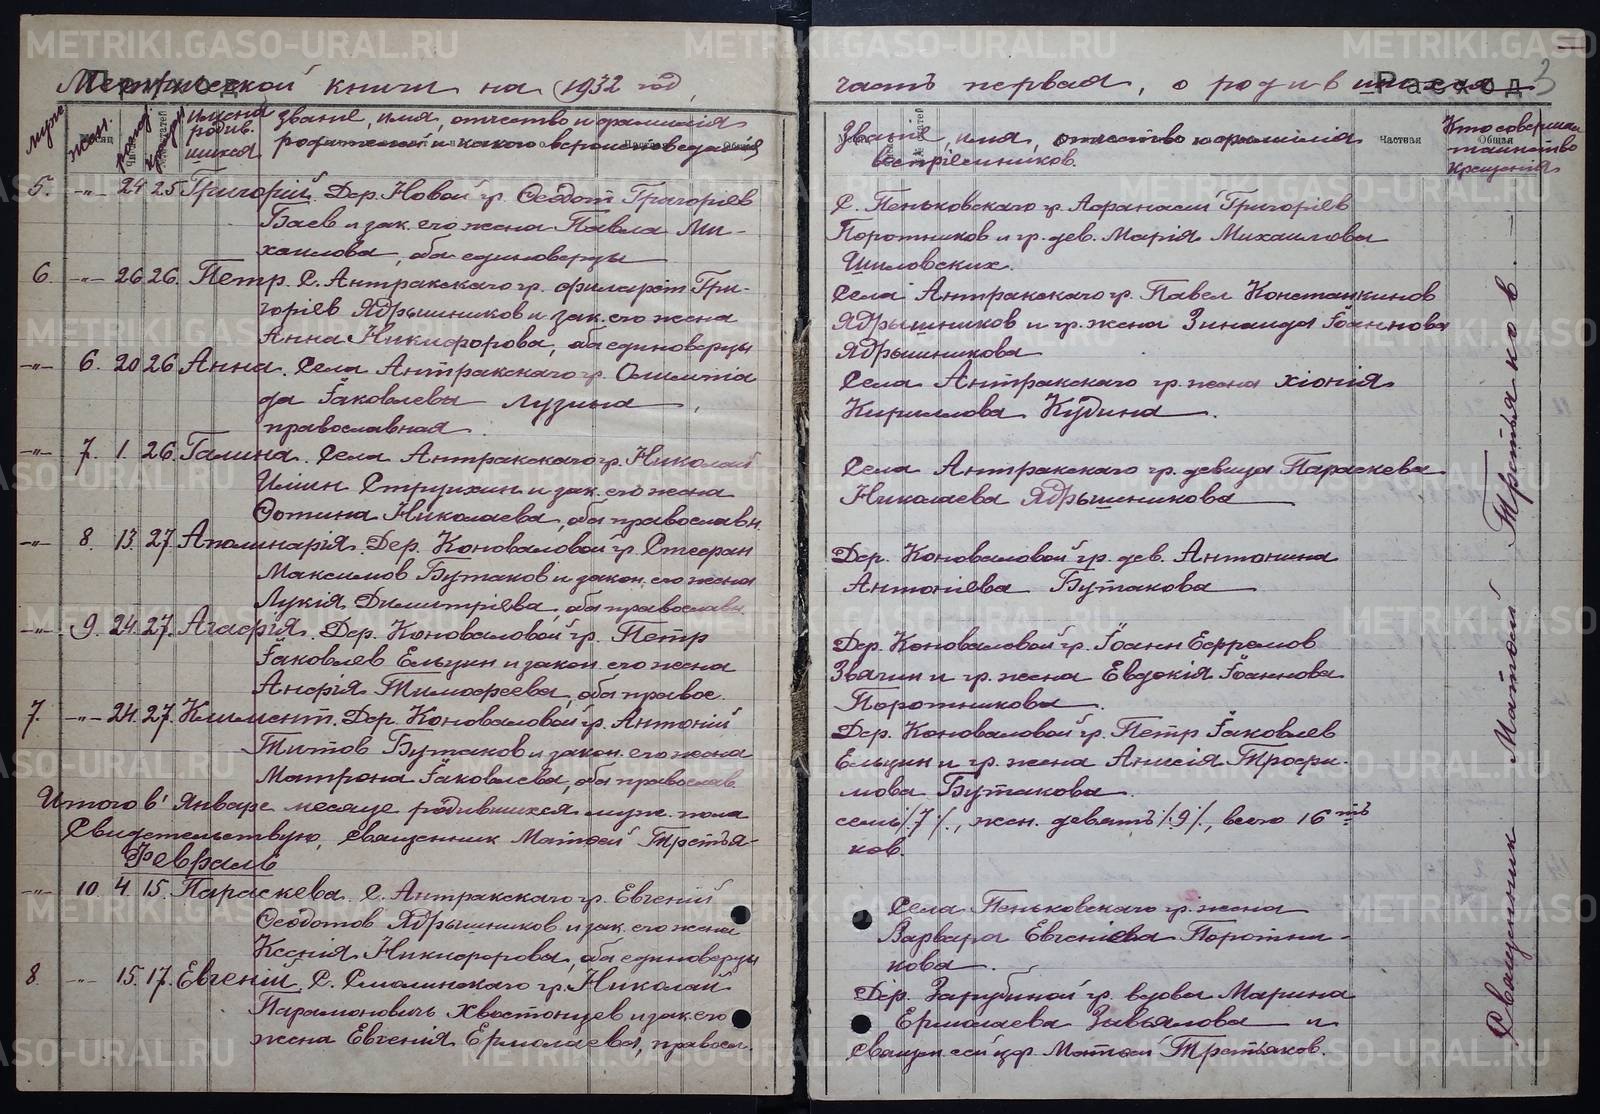 Метрической книги на 1932 год,
муж.
жен.
рожд.
крещ.
имена родив. шихся
Звание, имя, отчество и фамилія
родителей и какого вероисповеданія
5. -"- 24 25 Григорій. Дер. Новой гр. Феодот Григоріев
Баев и зак. его жена Павла Ми-
хаилова, оба единоверцы
6. -"- 26 26. Петр. С. Антракскаго гр. Филарет Гри-
горіев Ядрышников и зак. его жена
Анна Никифорова, оба единоверцы
-"- 6. 20 26 Анна. Села Антракскаго гр. Олимпіа
да Іаковлева Лузина,
православная.
-"- 7. 1. 26. Галина. Села Антракскаго гр. Николай
Ильин Струихин и зак. его жена
Фотина Николаева, оба православн.
-"- 8. 13. 27. Аполинарія. Дер. Коноваловой гр. Стефан
Максимов Бутаков и закон. его жена
Лукія Димитріева, оба православн.
-"- 9. 24. 27. Агафія. Дер. Коноваловой гр. Петр
Іаковлев Ельцин и закон. его жена
Анфія Тимофеева, оба правос.
7. -"- 24. 27. Климент. Дер. Коноваловой гр. Антоній
Титов Бутаков и закон. его жена
Матрона Іаковлева, оба православ.
Итого в Январе месяце родившихся муж. пола
Свидетельствую, Священник Матфей Третья-
Февраль
-"- 10. 4. 15. Параскева. С. Антракскаго гр. Евгений
Феодотов Ядрышников и зак. его жена
Ксенія Никифорова, оба единоверцы
8. -"- 15. 17. Евгеній. С. Смолинскаго гр. Николай
Парамонович Хвостонцев и зак. его
жена Евгенія Ермолаева, правосл.
часть первая, о родившихся
Расход
3
Званіе, имя, отчество и фамилія
воспріемников.
Частная
Общая
Кто совершал таинство крещенія
С. Пеньковскаго гр. Афанасій Григоріев
Поротников и гр. дев. Марія Михаилова
Шиловских.
Села Антракскаго гр. Павел Константинов
Ядрышников и гр. жена Зинаида Іоаннова
Ядрышникова
Села Антракскаго гр. жена Хіонія
Кириллова Кудина.
Села Антракскаго гр. девица Параскева
Николаева Ядрышникова
Дер. Коноваловой гр. дев. Антонина
Антоніева Бутакова
Дер. Коноваловой гр. Іоанн Ефремов
Звягин и гр. жена Евдокія Іоаннова
Поротникова.
Дер. Коноваловой гр. Петр Іаковлев
Ельцин и гр. жена Анисія Трофи-
мова Бутакова.
семь /:7:/, жен. девять /:9:/, всего 16 ть
ков.
Села Пеньковскаго гр. жена
Варвара Евгеніева Поротни-
кова.
Дер. Зарубиной гр. вдова Марина
Ермолаева Завьялова и
Священ. сей цер. Матфей Третьяков.
Священник Матфей Третьяков.
METRIKI.GASO-URAL.RU